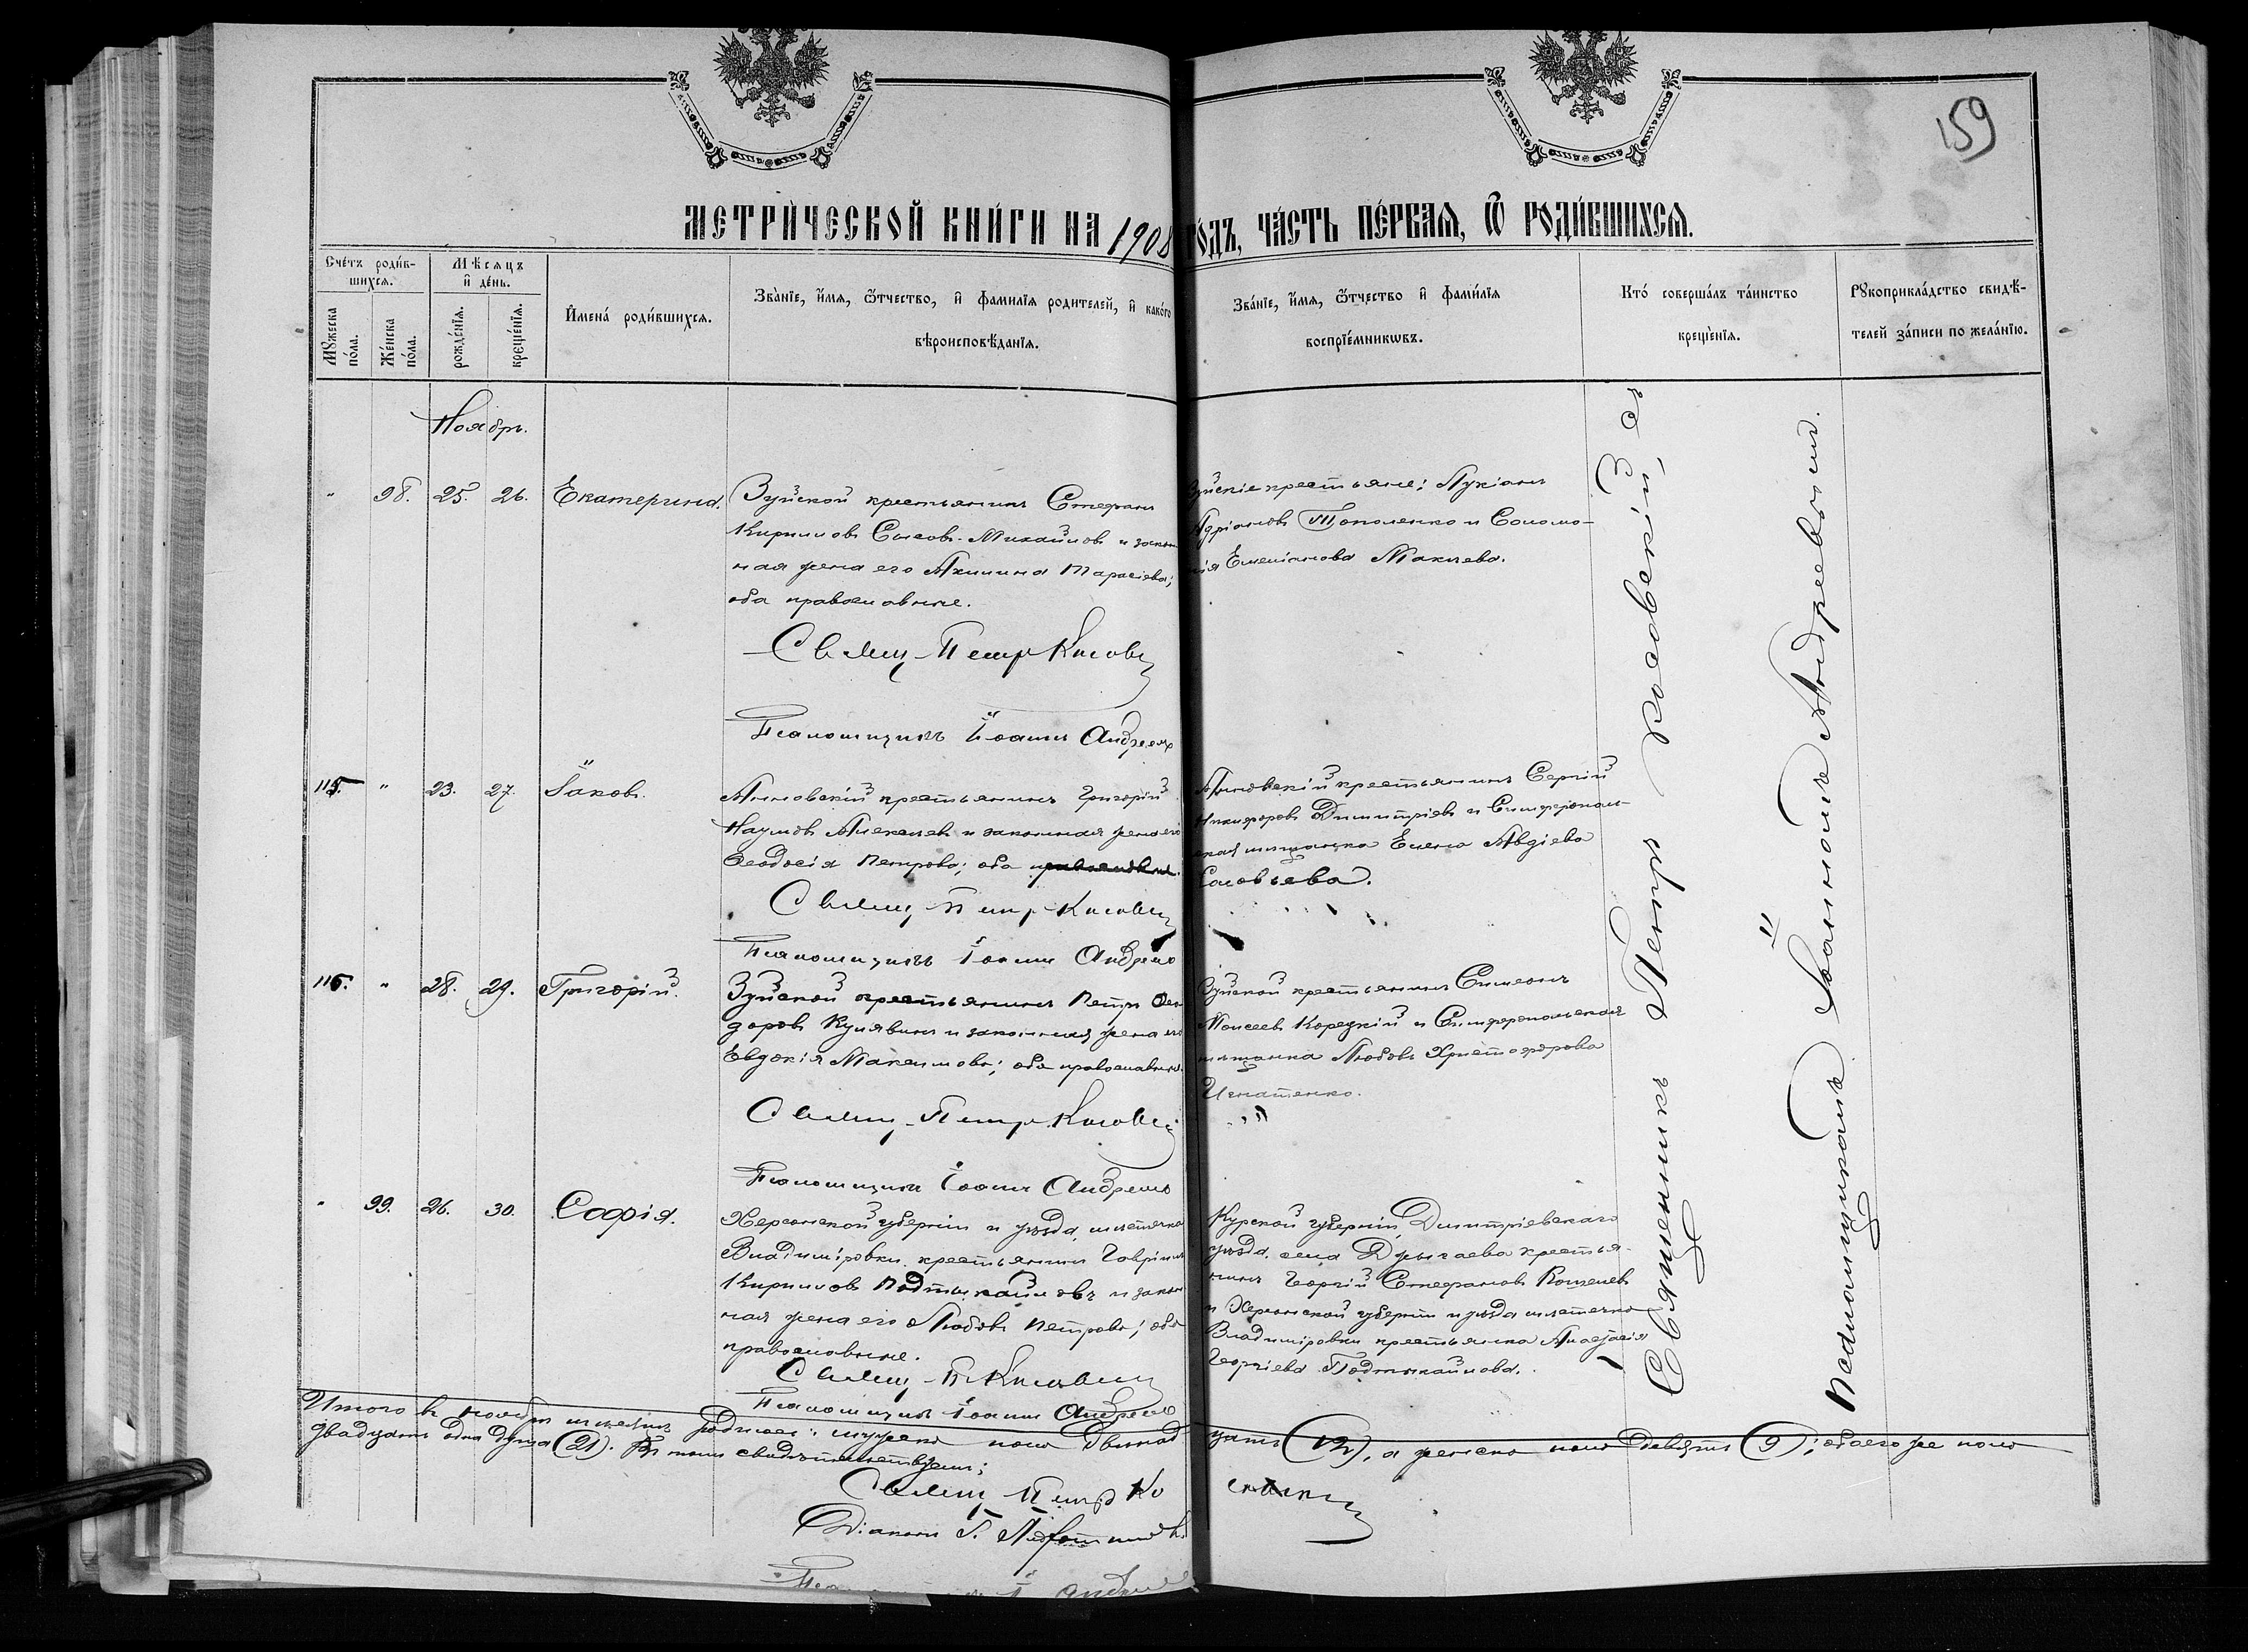 159
МЕТРИ́ЧЕСКОЙ КНИ́ГИ НА 1908 ГО́ДЪ, ЧА́СТЬ ПЕ́РВАЯ, Ѿ РОДИ́ВШИХСЯ.
Сче́тъ роди́в-
шихся.
Мѣ́сяцъ
и҆ де́нь.
Мꙋ́жеска
по́ла.
Же́нска
по́ла.
рожде́нїя.
креще́нїя.
И҆мена̀ роди́вшихся.
Зва́нїе, и҆́мя, ѻ҆́тчество, и҆ фами́лїя родителей, и҆ како́го
вѣроисповѣ́данїя.
Зва́нїе, и҆́мя, ѻ҆́тчество и҆ фами́лїя
воспрїе́мникѡвъ.
Кто̀ соверша́лъ та́инство
креще́нїя.
Рꙋкоприкла́дство свидѣ́-
телей за́писи по жела́нїю.
Ноябрь.
" 98. 25. 26. Екатерина.
Зуйской крестьянинъ Стефанъ
Кирилловъ Сысовъ-Михайловъ и закон
ная жена его Акилина Тарасіева;
оба православные.
Свящ. Петръ Косовск
Псаломщикъ Іоаннъ Андреев
Зуйскіе крестьяне: Лукіанъ
Адріановъ Тополенко и Соломо-
нія Емеліанова Макѣева.
115. " 23. 27. Іаковъ.
Анновскій крестьянинъ Григорій
Наумовъ Алексеевъ и законная жена его
Ѳеодосія Петрова; оба православные.
Свящ. Петръ Косовск
Псаломщикъ Іоаннъ Андреев
Анновскій крестьянинъ Сергій
Никифоровъ Димитріевъ и Симферополь-
ская мѣщанка Елена Авдіева
Соловьева.
116. " 28. 29. Григорій.
Зуйской крестьянинъ Петръ Ѳео
доровъ Кулявинъ и законная жена его
Евдокія Максимова; оба православные.
Свящ. Петръ Косовск
Псаломщикъ Іоаннъ Андреев
Зуйской крестьянинъ Симеонъ
Моисеевъ Корецкій и Симферопольская
мѣщанка Любовь Христофорова
Игнатенко.
" 99. 26. 30. Софія.
Херсонской губерніи и уѣзда, мѣстечка
Владиміровки крестьянинъ Гавріилъ
Кирилловъ Подтыкайловъ и закон
ная жена его Любовь Петрова; оба
православные.
Свящ. П. Косовск
Псаломщикъ Іоаннъ Андреев
Курской губерніи, Димитріевскаго
уѣзда, села крестья-
нинъ Георгій Стефановъ Кошелевъ
и Херсонской губерніи и уѣзда мѣстечка
Владиміровки крестьянка Анастасія
Георгіева Подтыкайлова.
Священникъ Петръ Косовскій, съ
Псаломщикомъ Іоанномъ Андреевымъ.
Итого въ ноябрѣ мѣсяцѣ родилось: мужеска пола двѣнад цать (12), а женска пола девять (9); обоего же пола
двадцать одна душа (21). Въ томъ свидѣтельствуемъ;
Свящ. Петръ Ко совск
Діаконъ